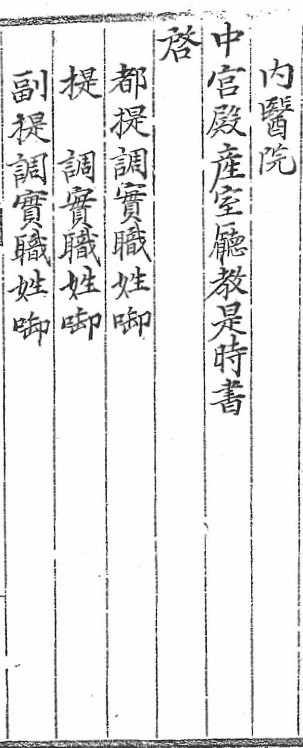 內醫院
中宮殿産室廳教是時書
啓
都提調實職姓啣
提 調實職姓啣
副提調實職姓啣